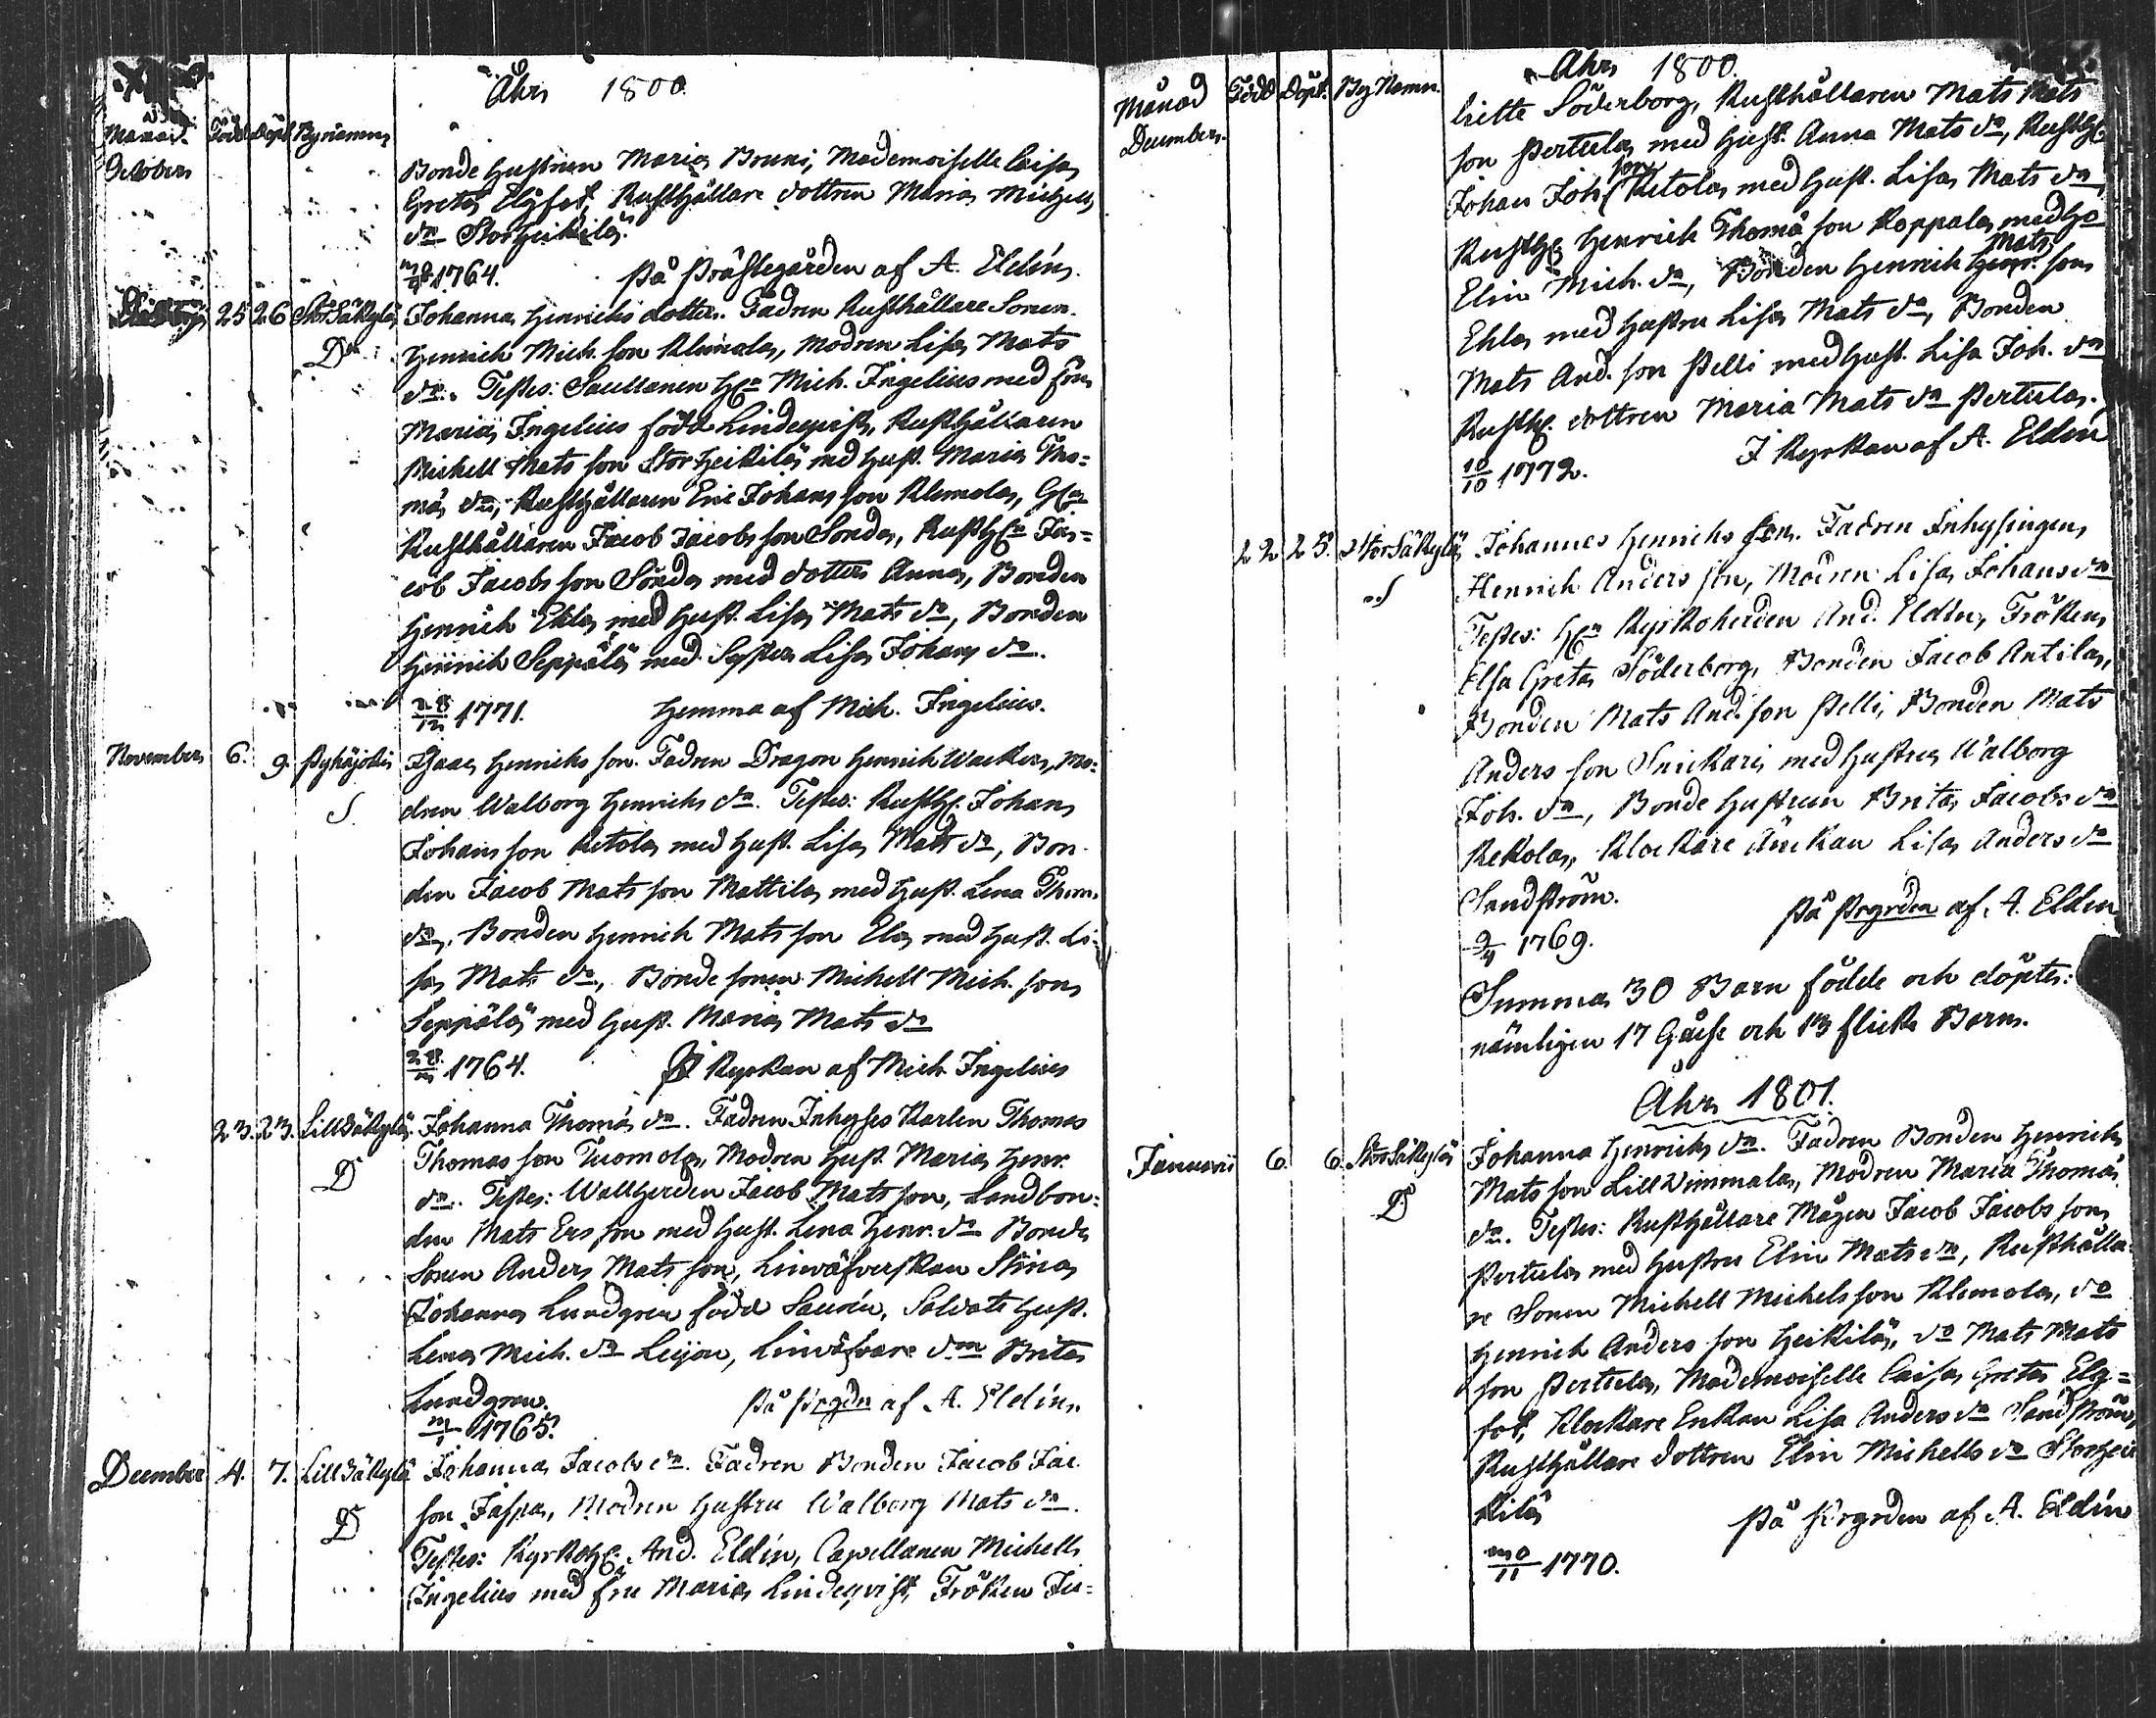 Åhr 1800.
Månad. Född Döpt Bynamn
October
Bonde hustrun Maria Bruni, Mademoiselle Caisa
Greta Elgfot, Rusthållare dottren Maria Michells
dr Storheikilä.
1764. På Prästegården af A. Eldin.
25 26 StorSäkylä Johanna Henrichs dotter. Fadren Rusthållare Sonen
D Henrich Mich. son Klemola, modren Lisa Mats
dr. Testes: Hr Mich. Ingelius med fru
Maria Ingelius född Lindeqvist, Rusthållaren
Michell Mats son Storheikilä med hust. Maria Tho=
mas dr, Rusthållaren Eric Johans son Klemola,
Rusthållaren Jacob Jacobs son Sonda, Jac=
cob Jacobs son Sonda med dotter Anna, Bonden
Henrich Ehla med hust. Lisa Mats dr, Bonden
Henrich Seppälä med Syster Lisa Johans dr.
28/12 1771. Hemma af Mich. Ingelius.
November 6. 9. Pyhäjoki Isaac Henrichs son. Fadren Dragon Henrich Wacker, Mo=
S. dren Walborg Henrichs dr. Testes: Rusth. Johan
Johans son Ketola med hust. Lisa Mats dr, Bon
den Jacob Mats son Mattila med hust. Lena Thom.
dr, Bonden Henrich Mats son Ela med hust. Li=
sa Mats dr, Bonde sonen Michell Mich. son
Seppälä med hust. Maria Mats dr
1764. I Kyrkan af Mich. Ingelius
23. 23. LillSäkylä Johanna Thomas dr. Fadren Inhyses Karlen Thomas
D Thomas son Tuomola, Modren hust. Maria Henr.
dr. Testes: Wallherden Jacob Mats son, Landbon=
den Mats Ers son med hust. Lena Henr. dr Bonde
Sonen Anders Mats son, Linwäfverskan Stina
Johanna Lundgren född Saurén, Soldats hust.
Lena Mich. dr Leijon, Linwäfvare drn Brita
Lundgren. På Prgdn af A. Eldin.
1765.
December 4. 7. LillSäkylä Johanna Jacobs dr. Fadren Bonden Jacob Jac.
D son Jaspa, Modren hustru Walborg Mats dr.
Testes: And. Eldin, Capellanen Michell
Ingelius med fru Maria Lindeqvist, Fröken Ju=
Åhr 1800.
Månad Född Döpt. By Namn.
December.
litte Söderborg, Rusthållaren Mats Mats
son Pertula med hust. Anna Mats dr, Rusth.
Johan Joh. son Ketola med hust. Lisa Mats dr,
Rusth. Henrich Thomæ son Koppala med H
Elin Mich. dr, Bonden Henrich Mats son
Ehla med hustru Lisa Mats dr, Bonden
Mats And. son Pelli med hust. Lisa Joh. dr
Rusth. dottren Maria Mats dr Pertula.
10/10 1772. I Kyrkan af A. Eldin
22 25. StorSäkylä Johannes Henrichs son. Fadren Inhysingen
S Henrich Anders son, Modren Lisa Johans dr
Testes: Hr Kyrkoherden And. Eldin, Fröken
Elsa Greta Söderborg, Bonden Jacob Antila,
Bonden Mats And. son Pelli, Bonden Mats
Anders son Snickari med hustru Walborg
Joh. dr, Bonde hustrun Brita Jacobs dr
Kekola, Klockare Änckan Lisa Anders dr
Sandström. På Prgrden af A. Eldin
9/4 1769.
Summa 30 Barn födde och döpte:
nämligen 17 Gåsse och 13 flick Barn.
Åhr 1801.
Januarii 6. 6. StorSäkylä Johanna Henrichs dr. Fadren Bonden Henrich
D Mats son LillWimmala, Modren Maria Thomas
dr. Testes: Rusthållare Mågen Jacob Jacobs son
Pertula med hustru Elin Mats dr, Rusthålla
re Sonen Michell Michels son Klemola, do
Henrich Anders son Heikilä, do Mats Mats
son Pertula, Mademoiselle Caisa Greta Elg=
fot, Klockare Enkan Lisa Anders dr Sandström,
Rusthållare dottren Elin Michells dr Storhei
kilä På Prgrden af A. Eldin
30/11 1770.